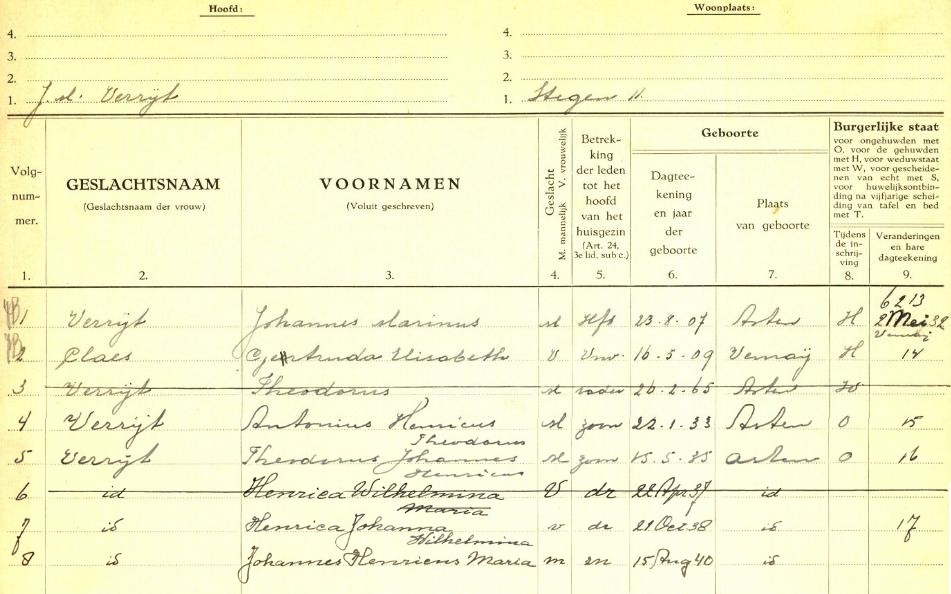 Hoofd:
Woonplaats:
4.
4.
3.
3.
2.
2.
1. J. M. Verrijt
1. Stegen 11.
Volg-
num-
mer.
GESLACHTSNAAM
(Geslachtsnaam der vrouw)
VOORNAMEN
(Voluit geschreven)
Geslacht
M. mannelijk V. vrouwelijk
Betrek-
king
der leden
tot het
hoofd
van het
huisgezin
(Art. 24,
3e lid, sub c.)
Geboorte
Dagtee-
kening
en jaar
der
geboorte
Plaats
van geboorte
Burgerlijke staat
voor ongehuwden met
O, voor de gehuwden
met H, voor weduwstaat
met W, voor gescheide-
nen van echt met S,
voor huwelijksontbin-
ding na vijfjarige schei-
ding van tafel en bed
met T.
Tijdens
de in-
schrij-
ving
Veranderingen
en hare
dagteekening
1. 2. 3. 4. 5. 6. 7. 8. 9.
6213
1 Verrijt Johannes Marinus M Hfd 23-8-07 Asten H 2 Mei 32
Venraij
2 Claes Gertruda Elisabeth V Vrw. 16-5-09 Venraij H 14
3 Verrijt Theodorus M vader 26-2-65 Asten W
4 Verrijt Antonius Henricus M zoon 22-1-33 Asten O 15
Theodorus
5 Verrijt Theodorus Johannes M zoon 15-5-35 Asten O 16
Henricus
6 id Henrica Wilhelmina V dr 22 Apr 37 id
Maria
7 id Henrica Johanna v dr 21 Oct 38 id 17
Wilhelmina
8 id Johannes Henricus Maria m zn 15 Aug 40 id